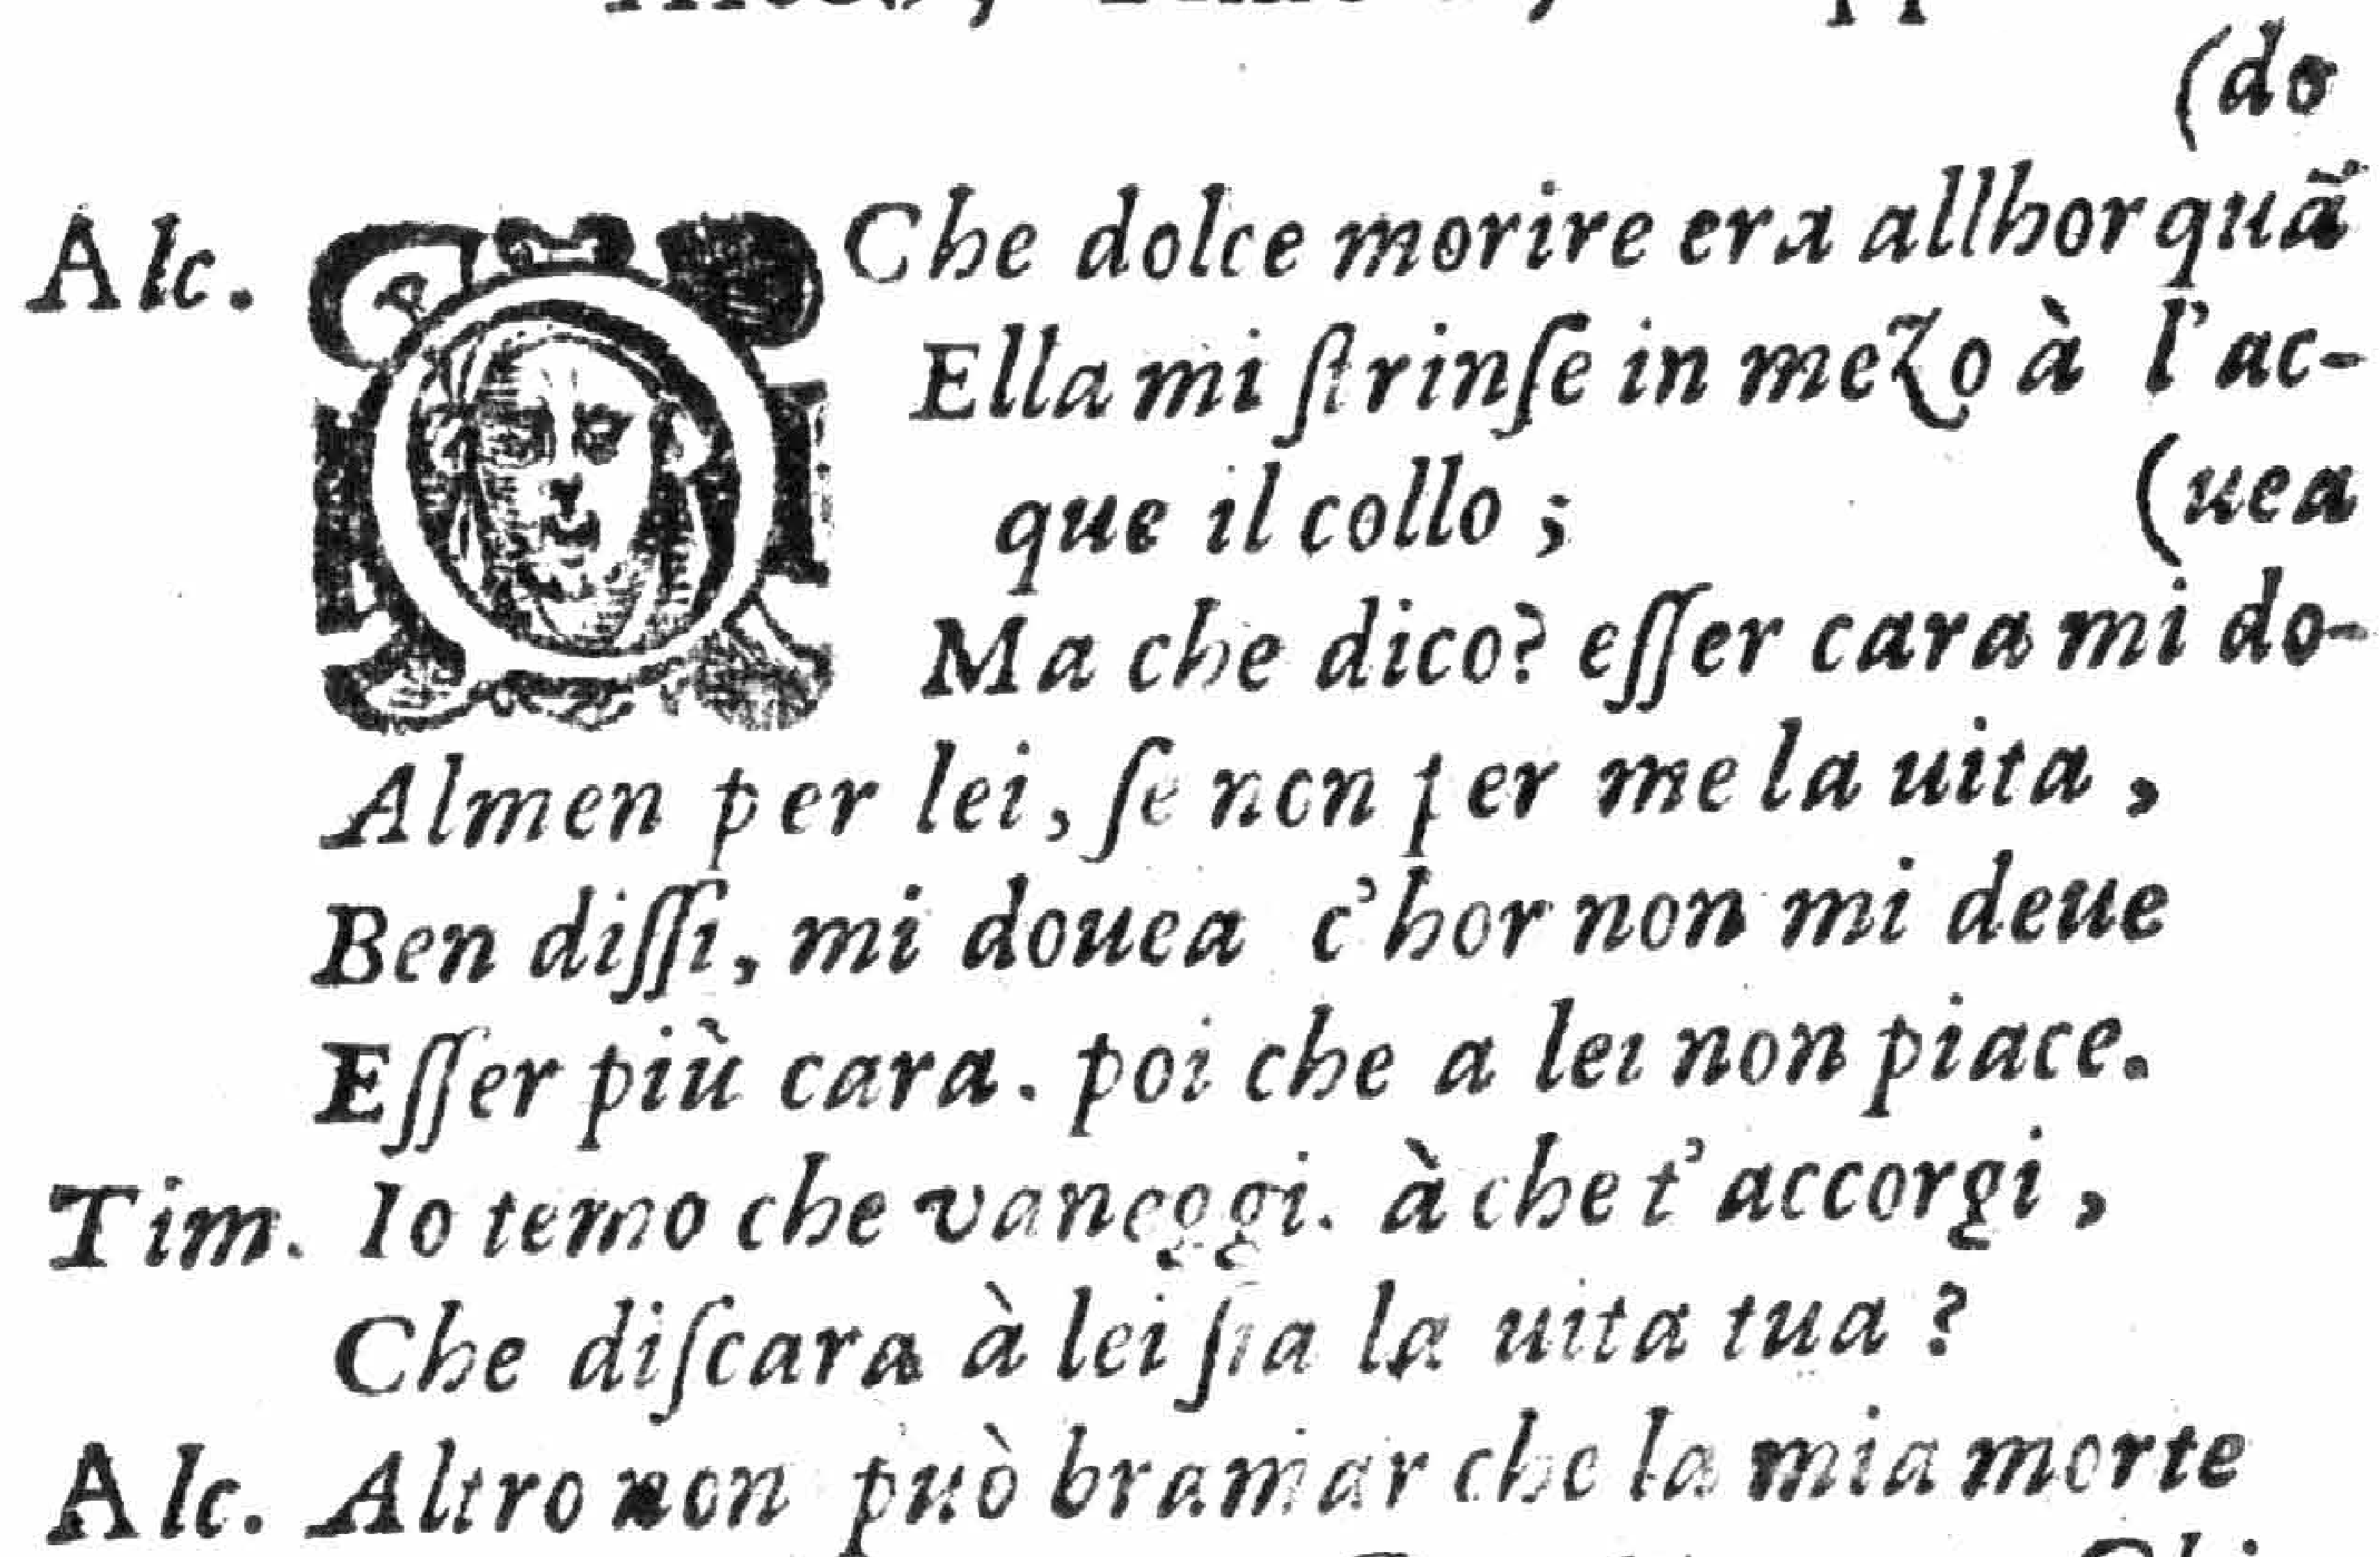 (do
Alc. O Che dolce morire era allhor quã
Ella mi ſtrinſe in mezo à l'ac-
que il collo ; (uea
Ma che dico? eſſer cara mi do-
Almen per lei, ſe non per me la uita ,
Ben diſſi, mi douea c'hor non mi deue
Eſſer più cara. poi che a lei non piace.
Tim. Io temo che vaneggi. à che t'accorgi ,
Che diſcara à lei ſia la uita tua ?
Alc. Altro non può bramar che la mia morte